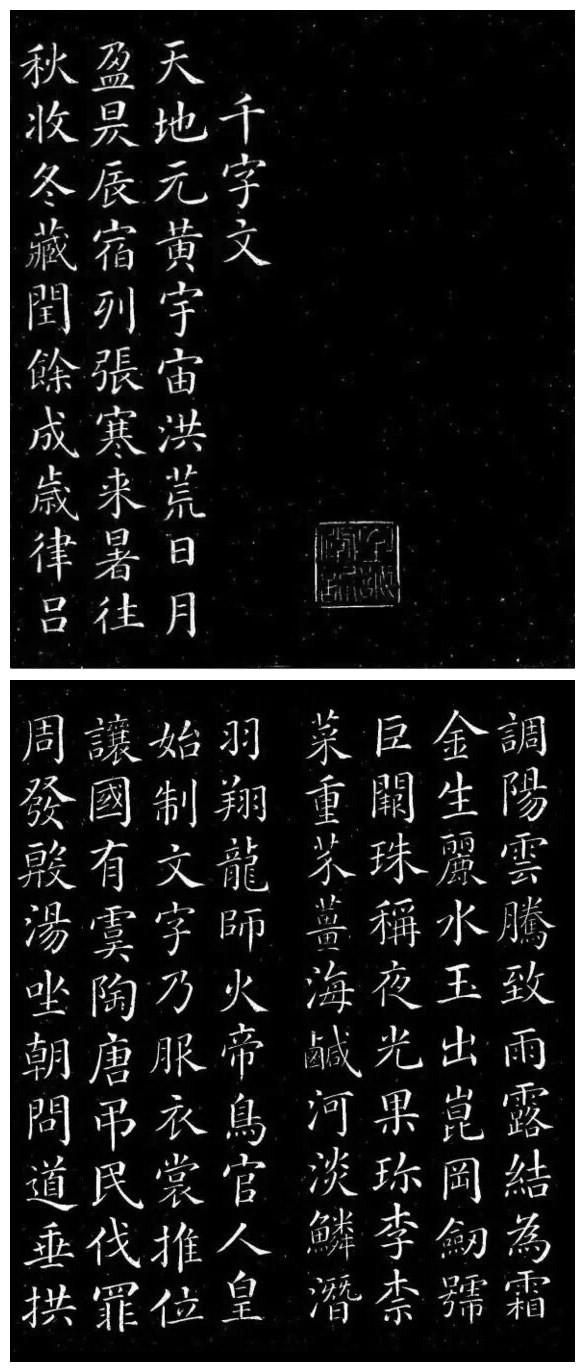 千字文
天地元黄宇宙洪荒日月
盈昃辰宿列張寒来暑往
秋收冬藏閏餘成歲律吕
調陽雲騰致雨露結為霜
金生麗水玉出崑岡劒號
巨闕珠稱夜光果珎李柰
菜重芥薑海鹹河淡鱗潛
羽翔龍師火帝鳥官人皇
始制文字乃服衣裳推位
讓國有虞陶唐吊民伐罪
周發殷湯坐朝問道垂拱